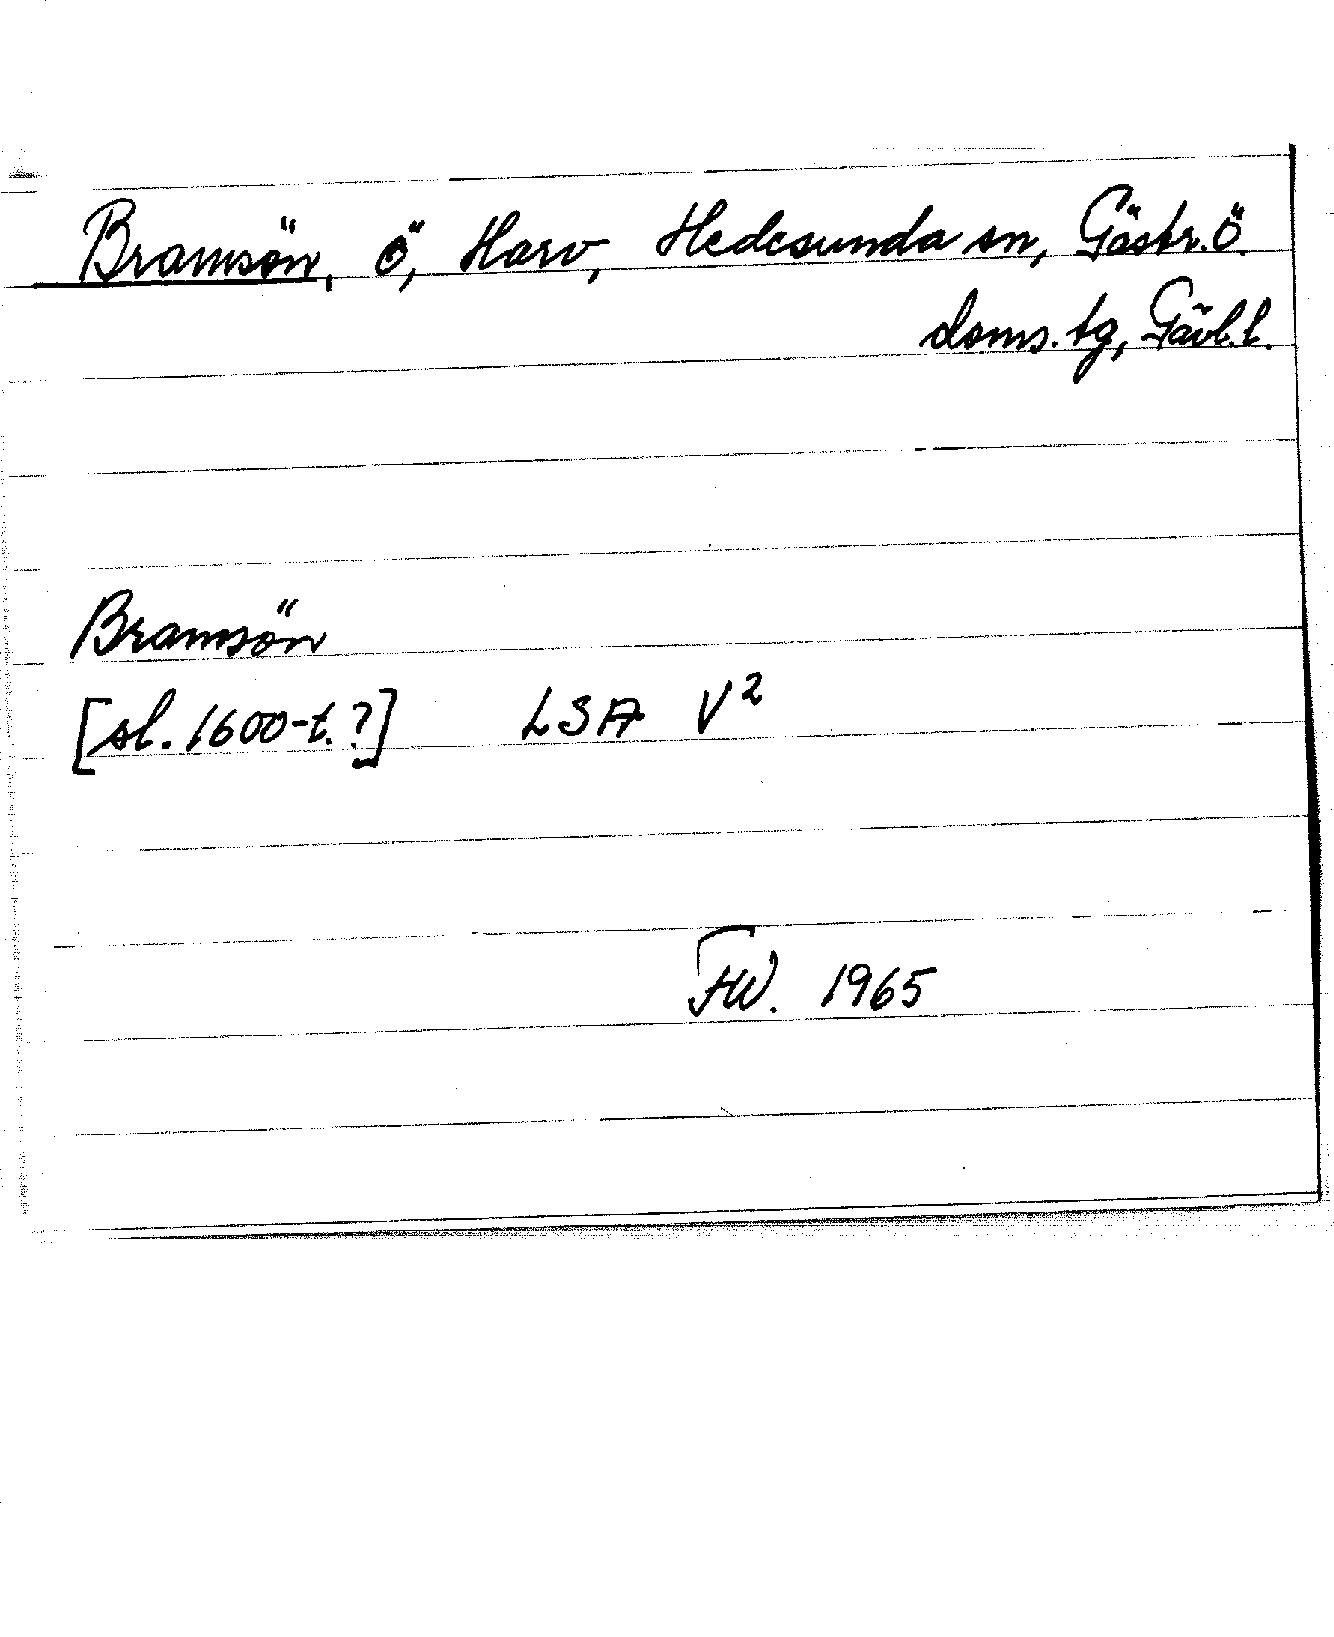 Bramsön, ö, Harv, Hedesunda sn, Gästr. Ö.
doms. tg, Gävl. l.
Bramsön
[sl. 1600-t.?] LSA V²
FW. 1965